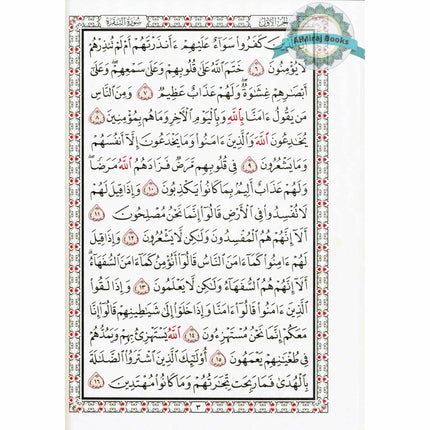 سُورَةُ البَقَرَة
الجُزْءُ الأَوَّل
AlMiraj Books
ٱلَّذِينَ كَفَرُوا۟ سَوَآءٌ عَلَيْهِمْ ءَأَنذَرْتَهُمْ أَمْ لَمْ تُنذِرْهُمْ
لَا يُؤْمِنُونَ ٦ خَتَمَ ٱللَّهُ عَلَىٰ قُلُوبِهِمْ وَعَلَىٰ سَمْعِهِمْ ۖ وَعَلَىٰٓ
أَبْصَٰرِهِمْ غِشَٰوَةٌ ۖ وَلَهُمْ عَذَابٌ عَظِيمٌ ٧ وَمِنَ ٱلنَّاسِ
مَن يَقُولُ ءَامَنَّا بِٱللَّهِ وَبِٱلْيَوْمِ ٱلْءَاخِرِ وَمَا هُم بِمُؤْمِنِينَ ٨
يُخَٰدِعُونَ ٱللَّهَ وَٱلَّذِينَ ءَامَنُوا۟ وَمَا يَخْدَعُونَ إِلَّآ أَنفُسَهُمْ
وَمَا يَشْعُرُونَ ٩ فِى قُلُوبِهِم مَّرَضٌ فَزَادَهُمُ ٱللَّهُ مَرَضًا ۖ
وَلَهُمْ عَذَابٌ أَلِيمٌۢ بِمَا كَانُوا۟ يَكْذِبُونَ ١٠ وَإِذَا قِيلَ لَهُمْ
لَا تُفْسِدُوا۟ فِى ٱلْأَرْضِ قَالُوٓا۟ إِنَّمَا نَحْنُ مُصْلِحُونَ ١١
أَلَآ إِنَّهُمْ هُمُ ٱلْمُفْسِدُونَ وَلَٰكِن لَّا يَشْعُرُونَ ١٢ وَإِذَا قِيلَ
لَهُمْ ءَامِنُوا۟ كَمَآ ءَامَنَ ٱلنَّاسُ قَالُوٓا۟ أَنُؤْمِنُ كَمَآ ءَامَنَ ٱلسُّفَهَآءُ ۗ
أَلَآ إِنَّهُمْ هُمُ ٱلسُّفَهَآءُ وَلَٰكِن لَّا يَعْلَمُونَ ١٣ وَإِذَا لَقُوا۟
ٱلَّذِينَ ءَامَنُوا۟ قَالُوٓا۟ ءَامَنَّا وَإِذَا خَلَوْا۟ إِلَىٰ شَيَٰطِينِهِمْ قَالُوٓا۟ إِنَّا
مَعَكُمْ إِنَّمَا نَحْنُ مُسْتَهْزِءُونَ ١٤ ٱللَّهُ يَسْتَهْزِئُ بِهِمْ وَيَمُدُّهُمْ
فِى طُغْيَٰنِهِمْ يَعْمَهُونَ ١٥ أُو۟لَٰٓئِكَ ٱلَّذِينَ ٱشْتَرَوُا۟ ٱلضَّلَٰلَةَ
بِٱلْهُدَىٰ فَمَا رَبِحَت تِّجَٰرَتُهُمْ وَمَا كَانُوا۟ مُهْتَدِينَ ١٦
٣